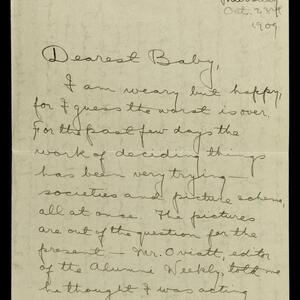 Oct. 23rd
1909
Dearest Baby,
I am weary but happy,
for I guess the worst is over.
For the past few days the
work of deciding things
has been very trying -
societies and picture scheme,
all at once. The pictures
are out of the question for the
present - Mr. Oviatt, editor
of the Alumni Weekly, told me
he thought I was acting